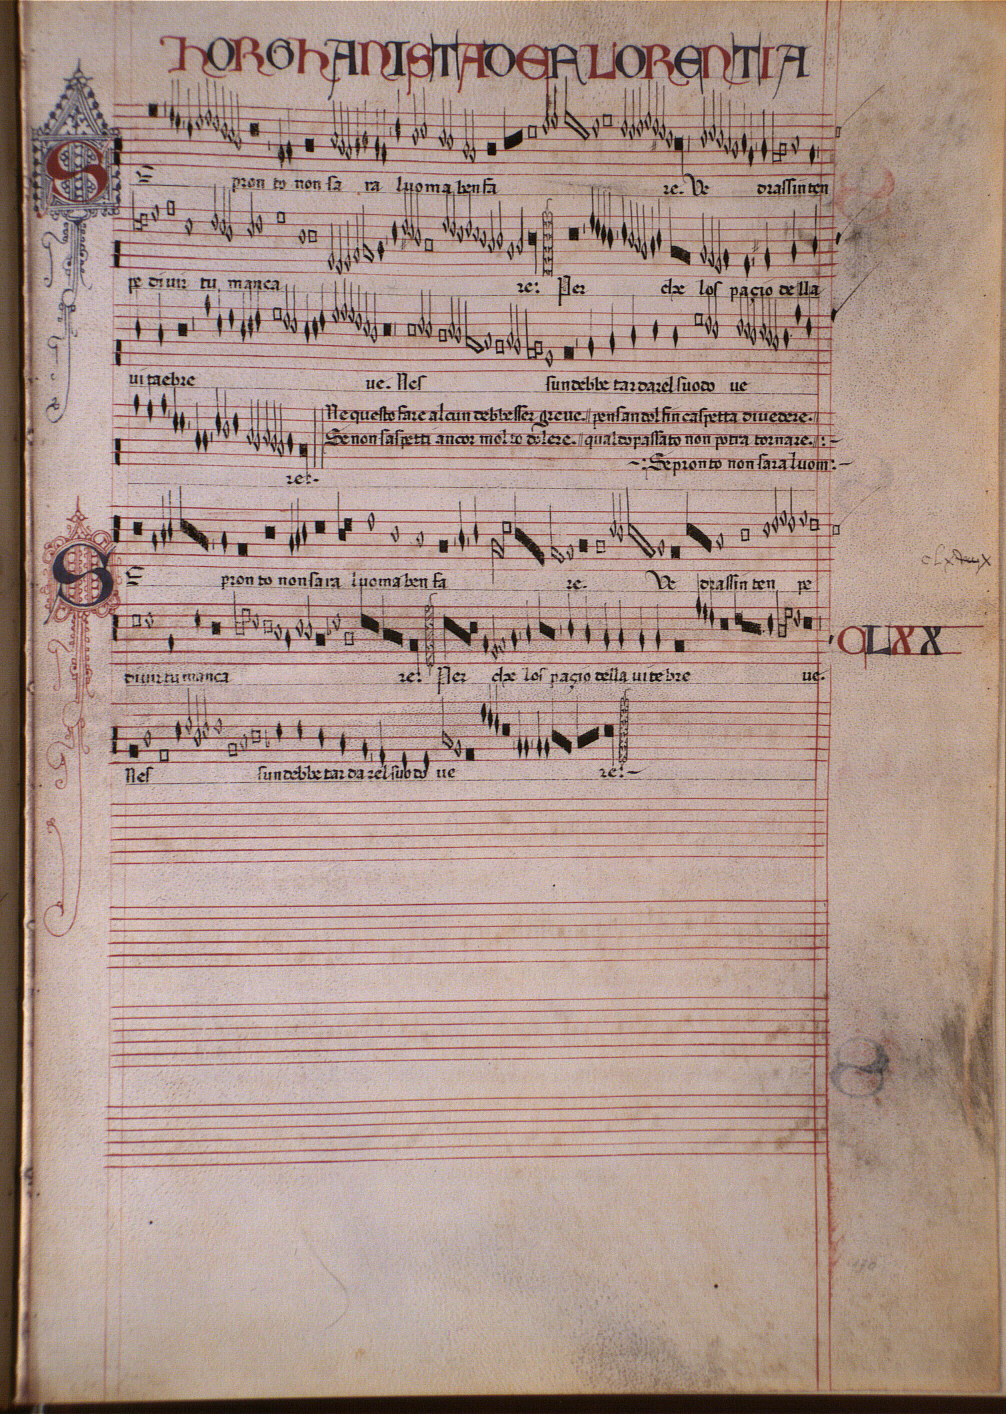 HORGHANISTA DE FLORENTIA
SE pron to non sa ra luoma ben fa re. Ve drassin ten
pe di vir tu manca re: Per che los pagio de lla
vi ta e bre ve. Nes sun debbe tar dar el suo do ve
Ne questo fare alcun debbesser greve. pensando'l fin caspetta divedere.
Se non saspetti ancor molto dolere. qualdopassato non potra tornare.
re:
Se pronto non sara luom:
SE pron to non sa ra luoma ben fa re. Ve drassin ten pe
divir tu manca re: Per che los pagio della vi te bre ve.
Nes sun debbe tar da rel suo do ve re:
CLXX